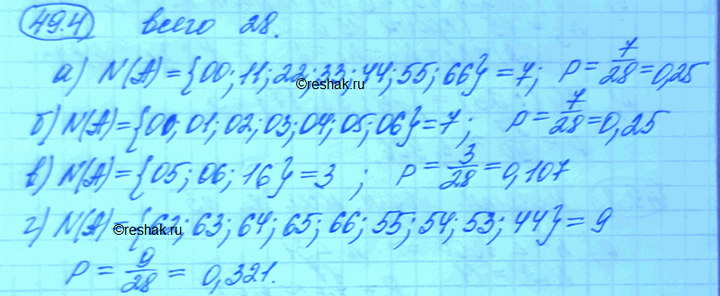 49.4 всего 28.
а) N(A)={00; 11; 22; 33; 44; 55; 66}=7; P=7/28=0,25
©reshak.ru
б) N(A)={00; 01; 02; 03; 04; 05; 06}=7; P=7/28=0,25
в) N(A)={05; 06; 16}=3; P=3/28=0,107
г) N(A)={62; 63; 64; 65; 66; 55; 54; 53; 44}=9
©reshak.ru
P=9/28=0,321.